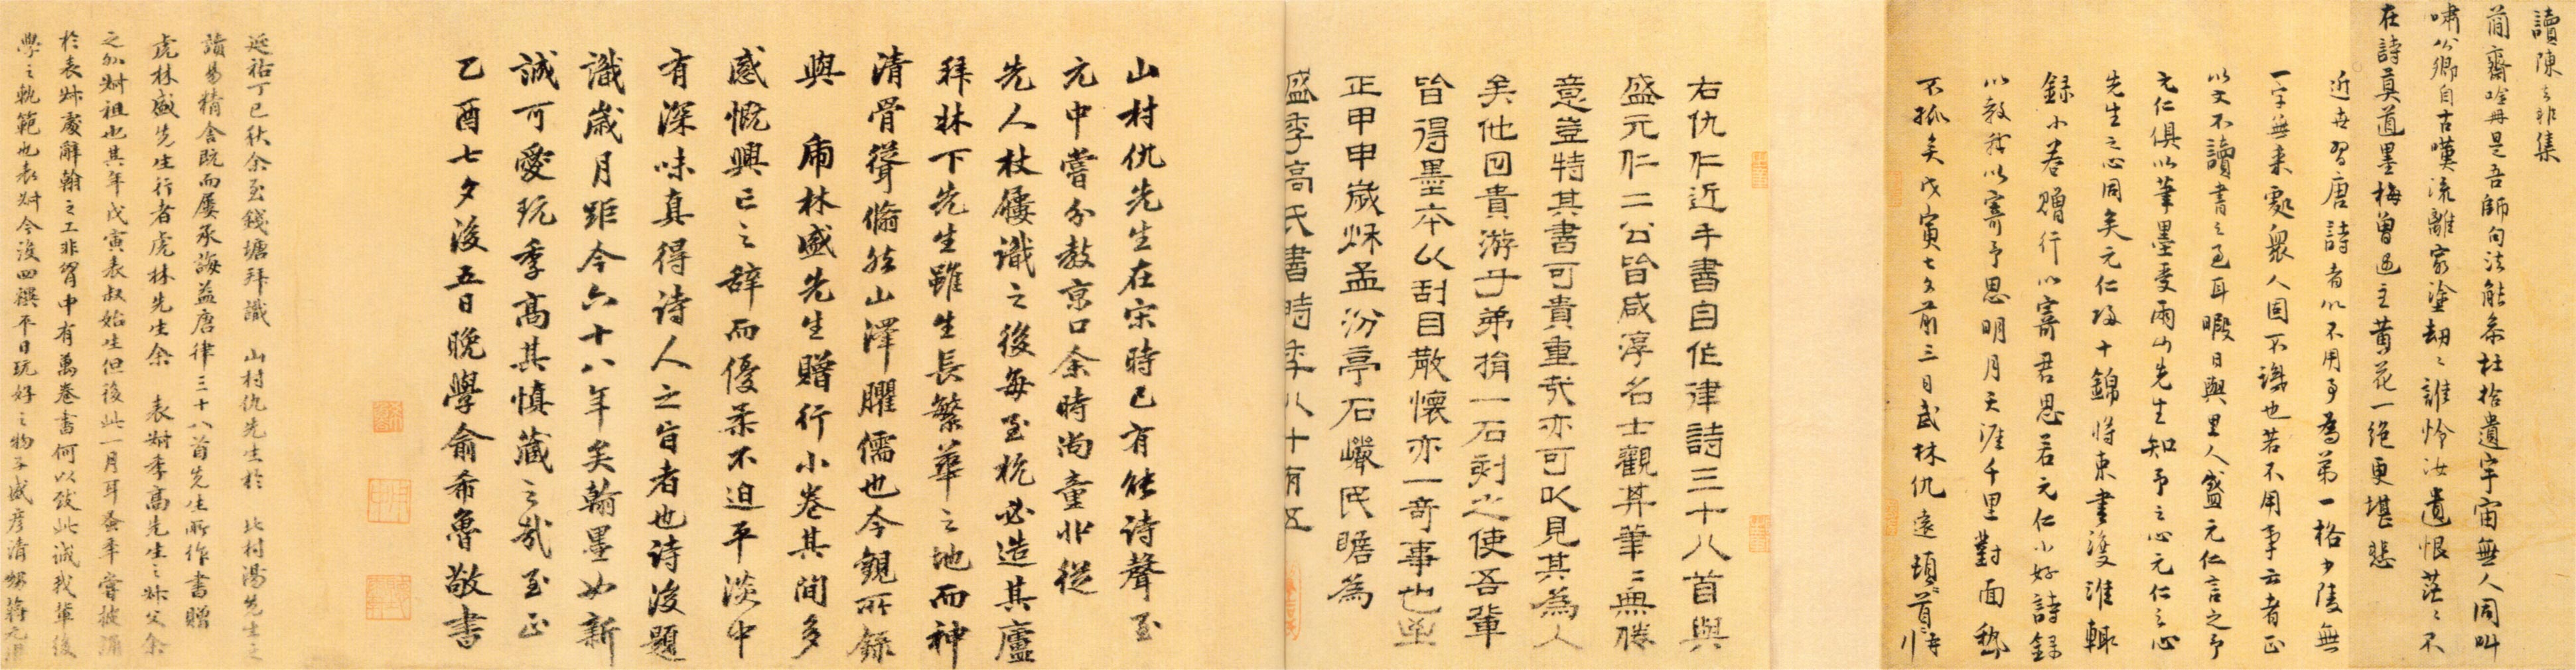 讀陳去非集
簡齋吟冊是吾師句法能參杜拾遺宇宙無人同叫
嘯公卿自古嘆流離家塗刼刼誰憐汝遺恨茫茫不
在詩莫道墨梅曾遇主黃花一絕更堪悲
近世習唐詩者以不用事為第一格少陵無
一字無來處衆人固不識也若不用事云者正
以文不讀書之過耳暇日與里人盛元仁言之予
元仁俱以筆墨受兩山先生知予之心元仁之心
先生之心同矣元仁歸十錦將束書渡淮輒
錄小卷贈行以寄君思若元仁小好詩錄
以教我以寄予思明月天涯千里對面孰
不孤矣戊寅七夕前三日武林仇遠頓首
右仇仁近手書自作律詩三十八首與
盛元仁二公皆咸淳名士觀其筆筆無倦
意豈特其書可貴重哉亦可以見其為人
矣他囙貴游子弟捐一石刻之使吾輩
皆得墨本以刮目散懷亦一奇事也至
正甲申歲秌孟汾亭石巖民瞻為
盛季高氏書時年八十有五
山村仇先生在宋時已有能詩聲至
元中嘗分教京口余時尚童丱從
先人杖屨識之後每至杭必造其廬
拜牀下先生雖生長繁華之地而神
清骨聳翛然山澤臞儒也今觀所錄
與 虎林盛先生贈行小卷其間多
感慨興亡之辭而優柔不迫平淡中
有深味真得詩人之旨者也詩後題
識歲月距今六十八年矣翰墨如新
誠可愛玩季高其慎藏之哉至正
乙酉七夕後五日晚學俞希魯敬書
延祐丁巳秋余至錢塘拜識 山村仇先生於 北村湯先生之
讀易精舍既而屢承誨益唐律三十八首先生所作書贈
虎林盛先生行者虎林先生余 表叔季高先生之叔父余
之外叔祖也其年戊寅表叔始生但後此一月耳蚤年嘗披誦
於表叔處辭翰之工非胷中有萬卷書何以致此誠我輩後
學之軌範也表叔今沒四禩平日玩好之物子盛彥清甥蔣元